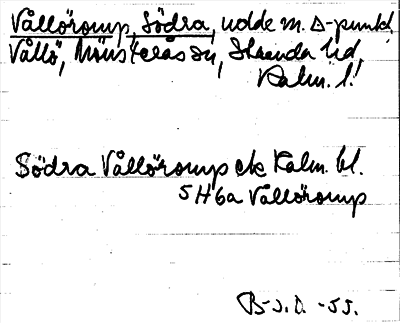 Vållöromp, Södra, udde m. Δ-punkt,
Vållö, Mönsterås sn, Stranda hd,
Kalm. l.
Södra Vållöromp ek Kalm. bl.
5H6a Vållöromp
B-J.D. -55.